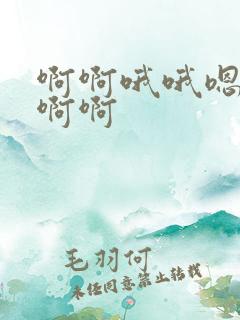 啊啊哦哦嗯
啊啊
毛羽何
未经同意禁止转载